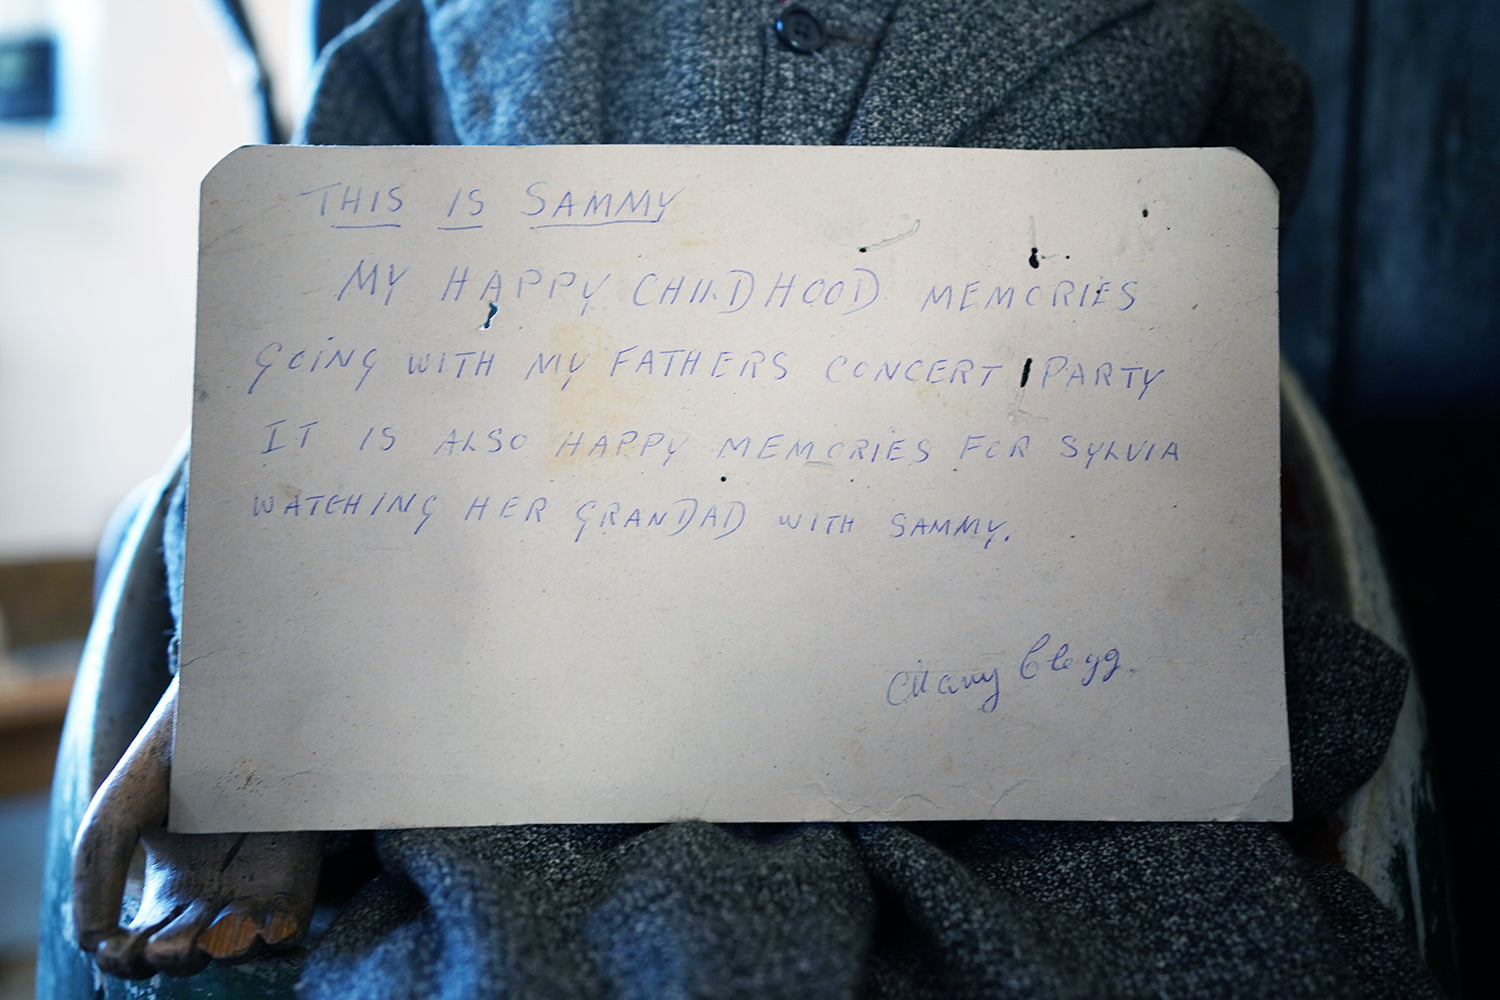 THIS IS SAMMY
MY HAPPY CHILDHOOD MEMORIES
GOING WITH MY FATHERS CONCERT PARTY
IT IS ALSO HAPPY MEMORIES FOR SYLVIA
WATCHING HER GRANDAD WITH SAMMY.
Mary Clegg.